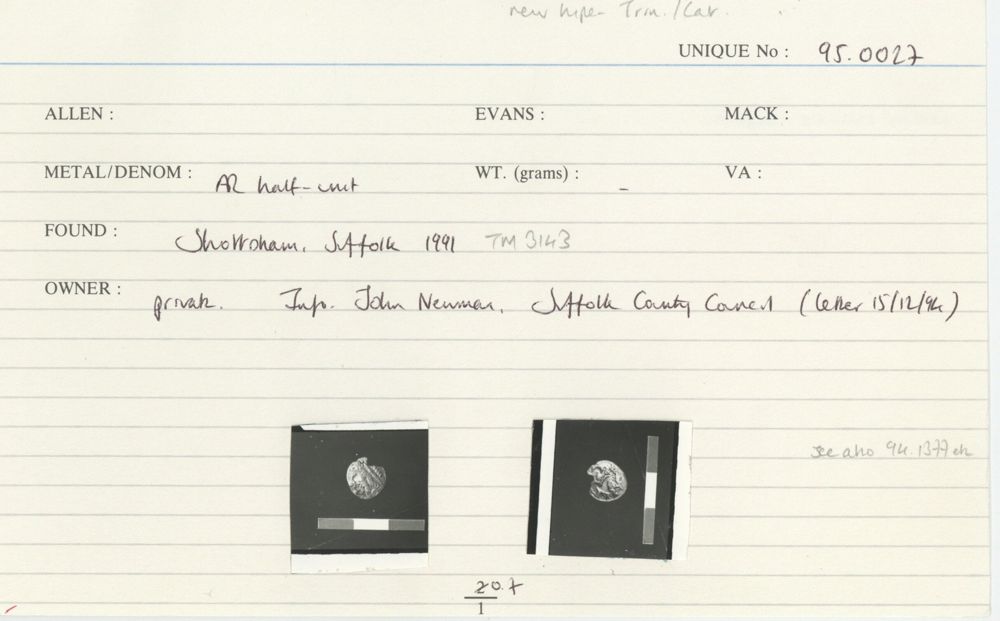 new type Trin./Cat.
UNIQUE No : 95.0027
ALLEN : EVANS : MACK :
METAL/DENOM : AR half-unit WT. (grams) : – VA :
FOUND : Shottisham, Suffolk 1991 TM 3143
OWNER : private. Info. John Newman, Suffolk County Council (letter 15/12/94)
see also 94.1377 etc
20.7
1